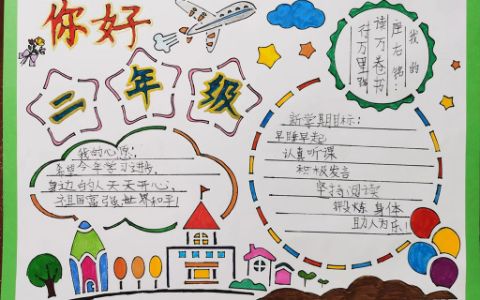 你好
二年级
我的
座右铭:
读万卷书
行万里路
我的心愿:
希望今年学习进步,
身边的人天天开心,
祖国富强,世界和平!
新学期目标:
早睡早起
认真听课
积极发言
坚持阅读
锻炼身体
助人为乐!